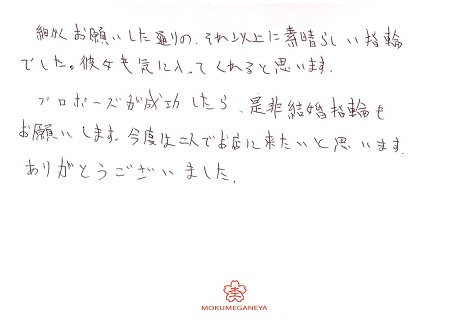 細かくお願いした通りの、それ以上に素晴らしい指輪
でした。彼女も気に入ってくれると思います。
プロポーズが成功したら、是非結婚指輪も
お願いします。今度は二人でお店に来たいと思います。
ありがとうございました。
MOKUMEGANEYA